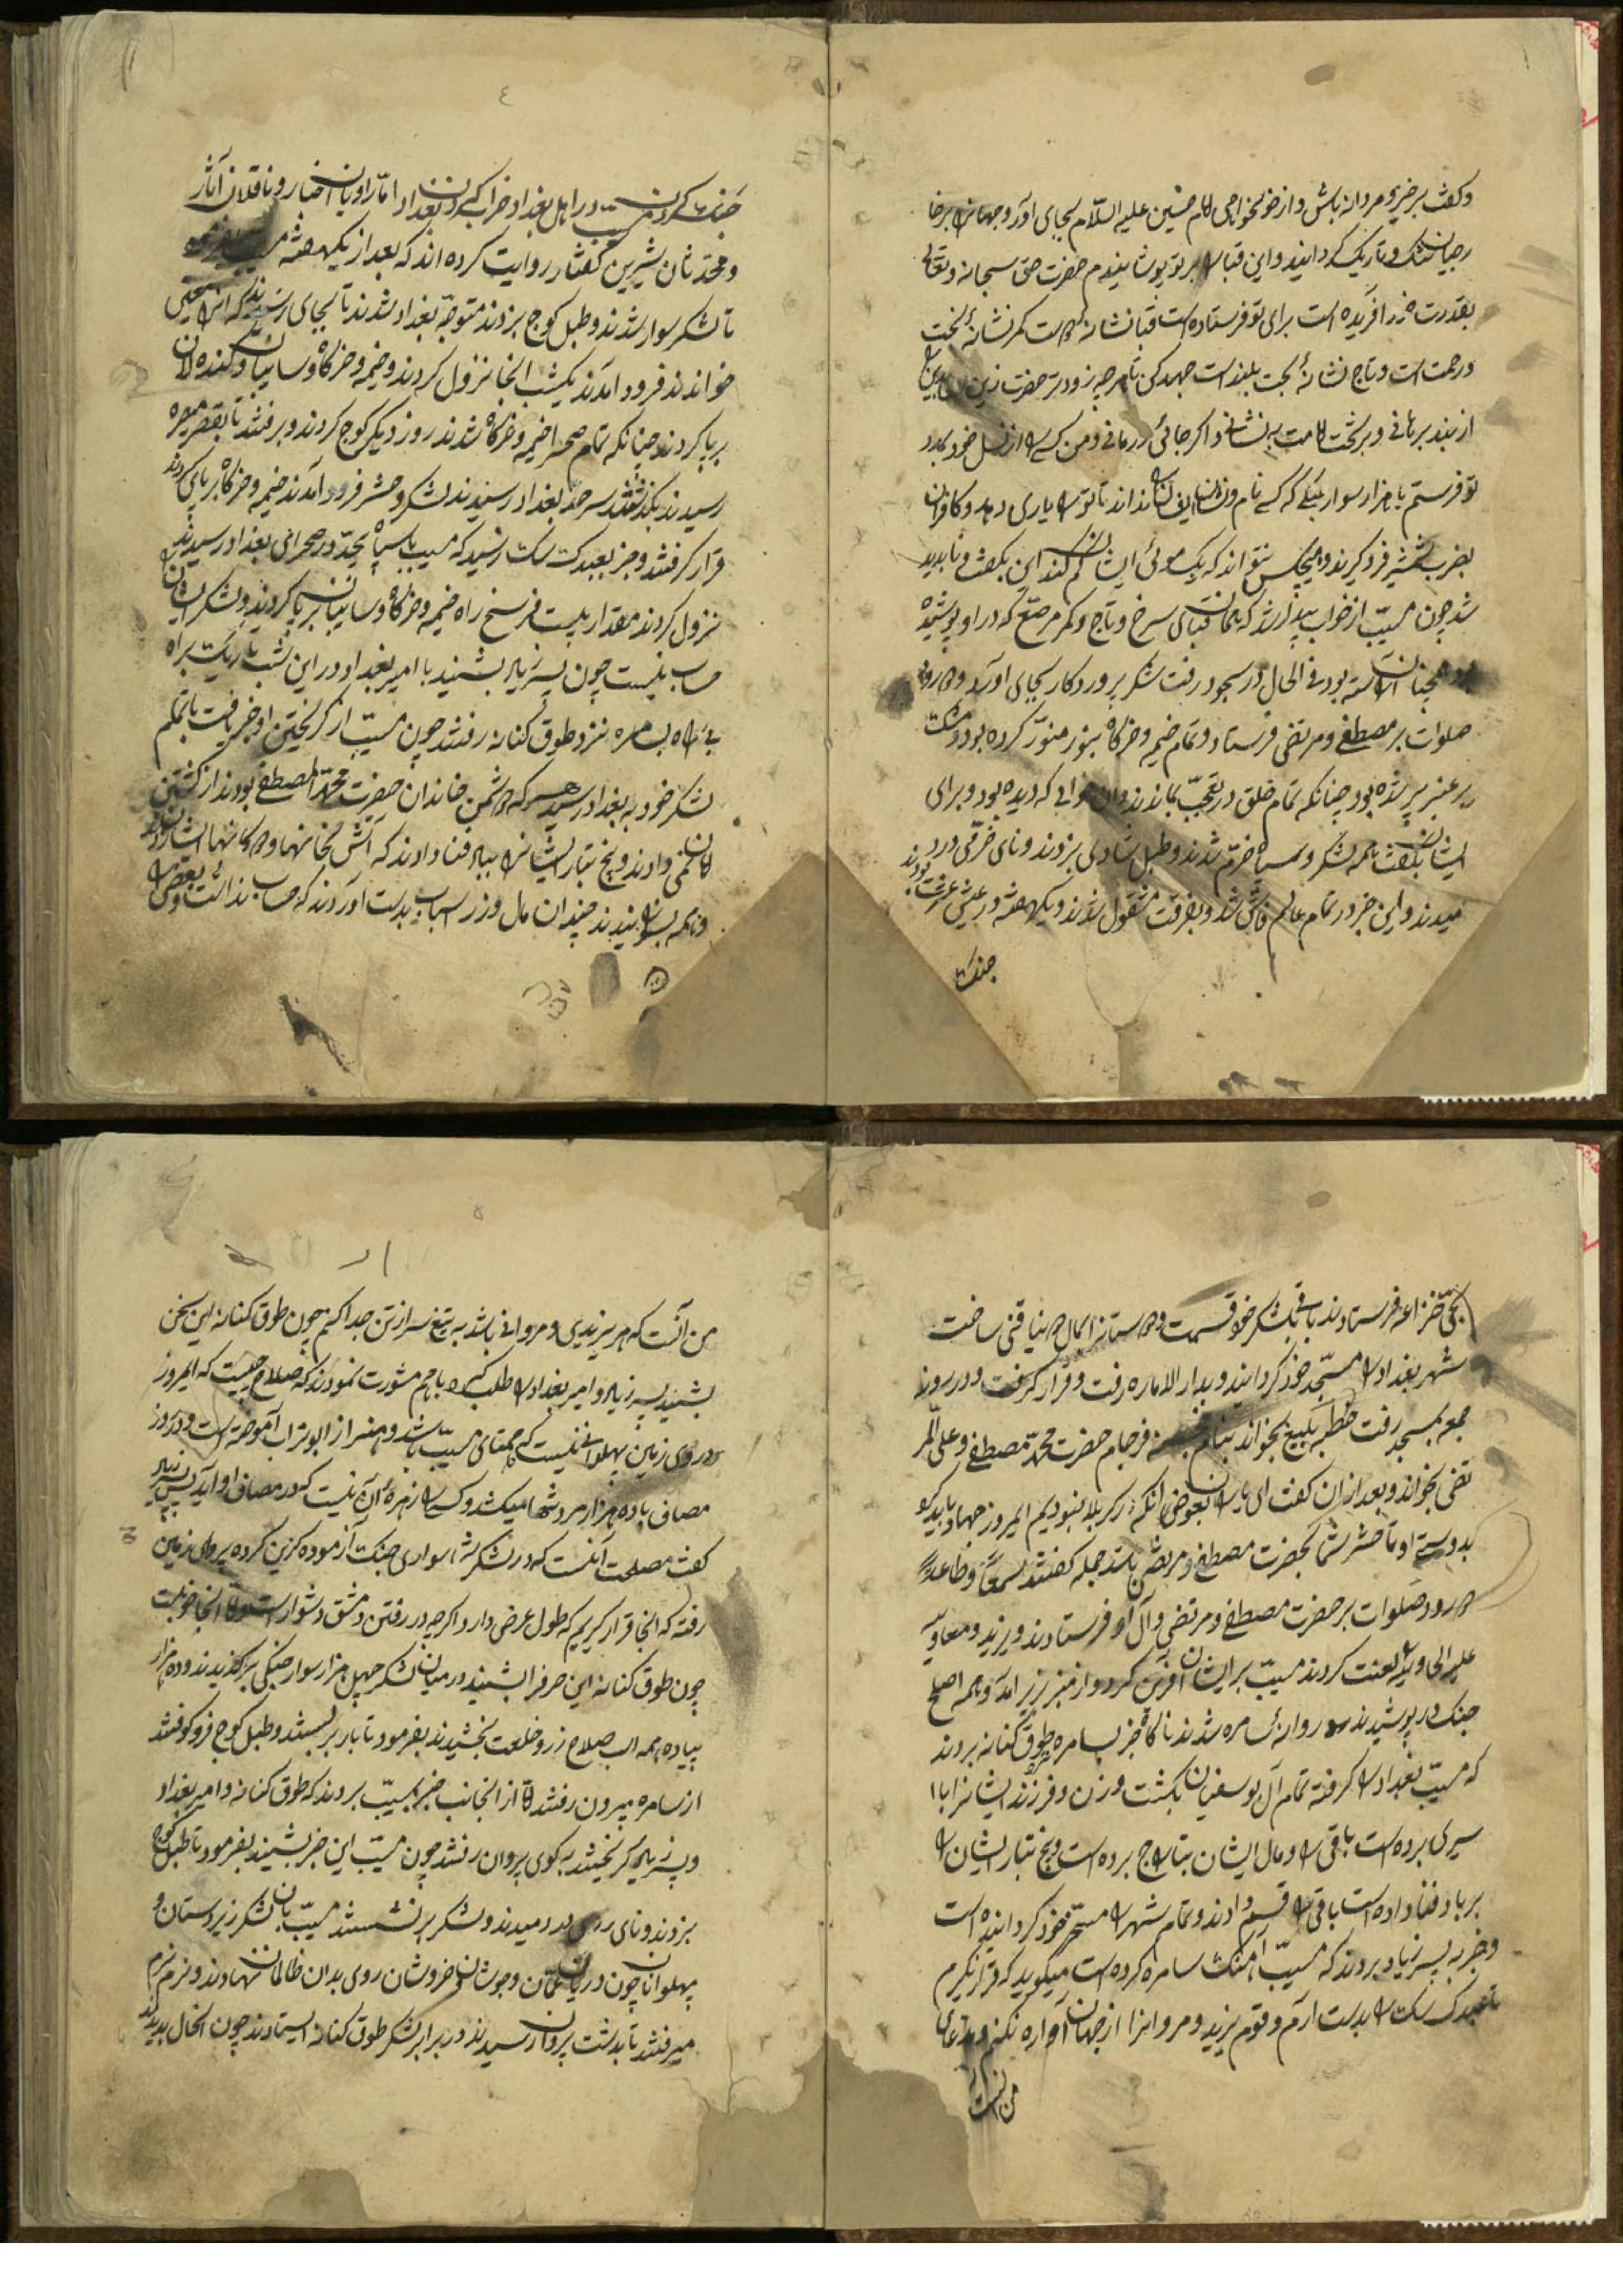 وگفت برخیز و مردانه باش و از خونخواهی امام حسین علیه السلام بجای آور و جهان را بر خا
رجیان تنگ و تاریک گردانید و این قبا را بر تو پوشانیدم حضرت حق سبحانه و تعالی
بقدرت خود آفریده است برای تو فرستاده است قبا نشانه است کمر نشانهٔ بخت
و رحمت است و تاج نشانهٔ بخت بلند است جهد کن تا هر چه زودتر حضرت زین العابدین را
از بند برهانی و بر تخت امامت بنشانی و اگر جائی درمانی من کسی را از نسل خود بمدد
تو فرستم با هزار سوار که کسی نام و نشان ایشان نداند تا ترا یاری دهد و کافران
بضرب شمشیر فرو گیرند و هیچکس نتواند که یک موئی ایشان کم کند این بگفت و ناپدید
شد چون مسیب از خواب بیدار شد که همان قبای سرخ و تاج و کمر مرصع که در او پوشیده
همچنان آراسته بود فی الحال در سجود رفت شکر پروردگار بجای آورد و درود
صلوات بر مصطفی و مرتضی فرستاد و تمام خیمه و خرگاه بنور منور کرده بود و مشک
و عنبر پر شده بود چنانکه تمام خلق در تعجب بماندند و آن خوابی که دیده بود برای
ایشان بگفت همه لشکر و سپاه خرم شدند و طبل شادی بزدند و نای خرمی در
دمیدند و این خبر در تمام عالم فاش شد و بفرقت مشغول شدند و یکهفته در عیش عشرت بودند
جنگ
جنگ کردن مسیب در اهل بغداد و خراب کردن بغداد اما راویان اخبار و ناقلان آثار
و محدثان شیرین گفتار روایت کرده اند که بعد از یکهفته مسیب بفرمود
تا لشکر سوار شدند و طبل کوچ بزدند متوجه بغداد شدند تا بجای رسیدند که آنرا
خواندند فرود آمدند یکشب آنجا نزول کردند و خیمه و خرگاه و سایبان
بر پا کردند چنانکه تمام صحرا خیمه و خرگاه شدند روز دیگر کوچ کردند و برفتند تا بقصر
رسیدند بگذشتند بسرحد بغداد رسیدند لشکر و حشر فرود آمدند خیمه و خرگاه بر پای کردند
قرار گرفتند و خبر بعبدک سکت رسید که مسیب با سپاه بیحد در صحرای بغداد رسیدند
نزول کردند مقدار بیست فرسخ راه خیمه و خرگاه و سایبان بر پا کردند و لشکر ایشان را
حساب نیست چون پسر زیاد بشنید با امیر بغداد در این شب تاریک براه
بی راه بسامره نزد طوق کنانه رفتند چون مسیب از گریختن او خبر یافت با تمام
لشکر خود به بغداد رسید هر که دشمن خاندان حضرت محمد المصطفی بودند از کشتن
امان نمی دادند و بیخ تبار ایشانرا بباد فنا دادند که آتش بخانها و دکانها ایشان زدند
و همه بسوزانیدند چندان مال و زر اسباب بدست آوردند که حساب نداشت و بعضی را
بجی خزانه فرستادند باقی بلشکر خود قسمت و دوستان را مال
شهر بغداد را مسخر خود گردانید و بدار الاماره رفت و قرار گرفت و در روز
جمعه بمسجد رفت خطبه بلیغ بخواند بنام فرجام حضرت محمد مصطفی و علی المر
تضی بخواند و بعد از آن گفت ای یاران بعوض آنکه در کربلا نبودیم امروز جهاد باید کرد
بدوستی او تا حشر شما بحضرت مصطفی و مرتضی باشد جمله گفتند سمعاً و طاعةً
درود صلوات بر حضرت مصطفی و مرتضی و آل او فرستادند و یزید و معاویه
علیه الهاویه را لعنت کردند مسیب بر ایشان آفرین کرد و از منبر زیر آمد و همه اصلح
جنگ در پوشیدند و روانهٔ سامره شدند ناگاه خبر بسامره طوق کنانه بردند
که مسیب بغداد را گرفته تمام آل بوسفیان بکشت و زن و فرزند ایشانرا با
سیری برده است باقی را و مال ایشان بتاراج برده است و بیخ تبار ایشان را
بر باد فنا داده است باقی را قسم دادند و تمام شهر را مسخر خود گردانیده است
و خبر به پسر زیاد بردند که مسیب آهنگ سامره کرده است میگوید که قرار نگیرم
تا عبدک سکت را بدست آرم و قوم یزید و مروانرا از جهان آواره نکنم و مدعای
من آنست
من آنست که هر یزیدی و مروانی باشد به تیغ سر از تن جدا کنم چون طوق کنانه این سخن
بشنید پسر زیاد و امیر بغداد را طلب کرد باهم مشورت نمودند که صلاح چیست که امروز
در روی زمین پهلوانی نیست که همتای مسیب باشد و هنر از ابوتراب آموخته است و در روز
مصاف با ده هزار مرد تنها میکشد و کسی را زهرهٔ آن نیست که در مصاف او آید پس پسر زیاد
گفت مصلحت آنست که در لشکر تو سواری جنگ آزموده گزین کرده بروان زمین
رفته که آنجا قرار گیریم که طول عرض دارد اگر چه در رفتن دمشق دشوار است اما آنجا خوبست
چون طوق کنانه این حرف را بشنید در میان لشکر چهل هزار سوار جنگی برگزیدند و ده هزار
پیاده همه اسب صلاح زر و خلعت بخشیدند بفرمود تا بار بر بستند و طبل کوچ فرو کوفتند
از سامره بیرون رفتند اما از آنجانب خبر بمسیب بردند که طوق کنانه و امیر بغداد
و پسر زیاد گریختند به کوی پروان رفتند چون مسیب این خبر بشنید بفرمود تا طبل کوچ
بزدند و نای در دمیدند و لشکر بر نشستند مسیب با آن لشکر زبردستان و
پهلوانان چون دریای عمان و جوشان و خروشان روی بدان ظالمان نهادند و نرم نرم
میرفتند تا بدشت پروان رسیدند در برابر لشکر طوق کنانه ایستادند چون آنحال بدیدند